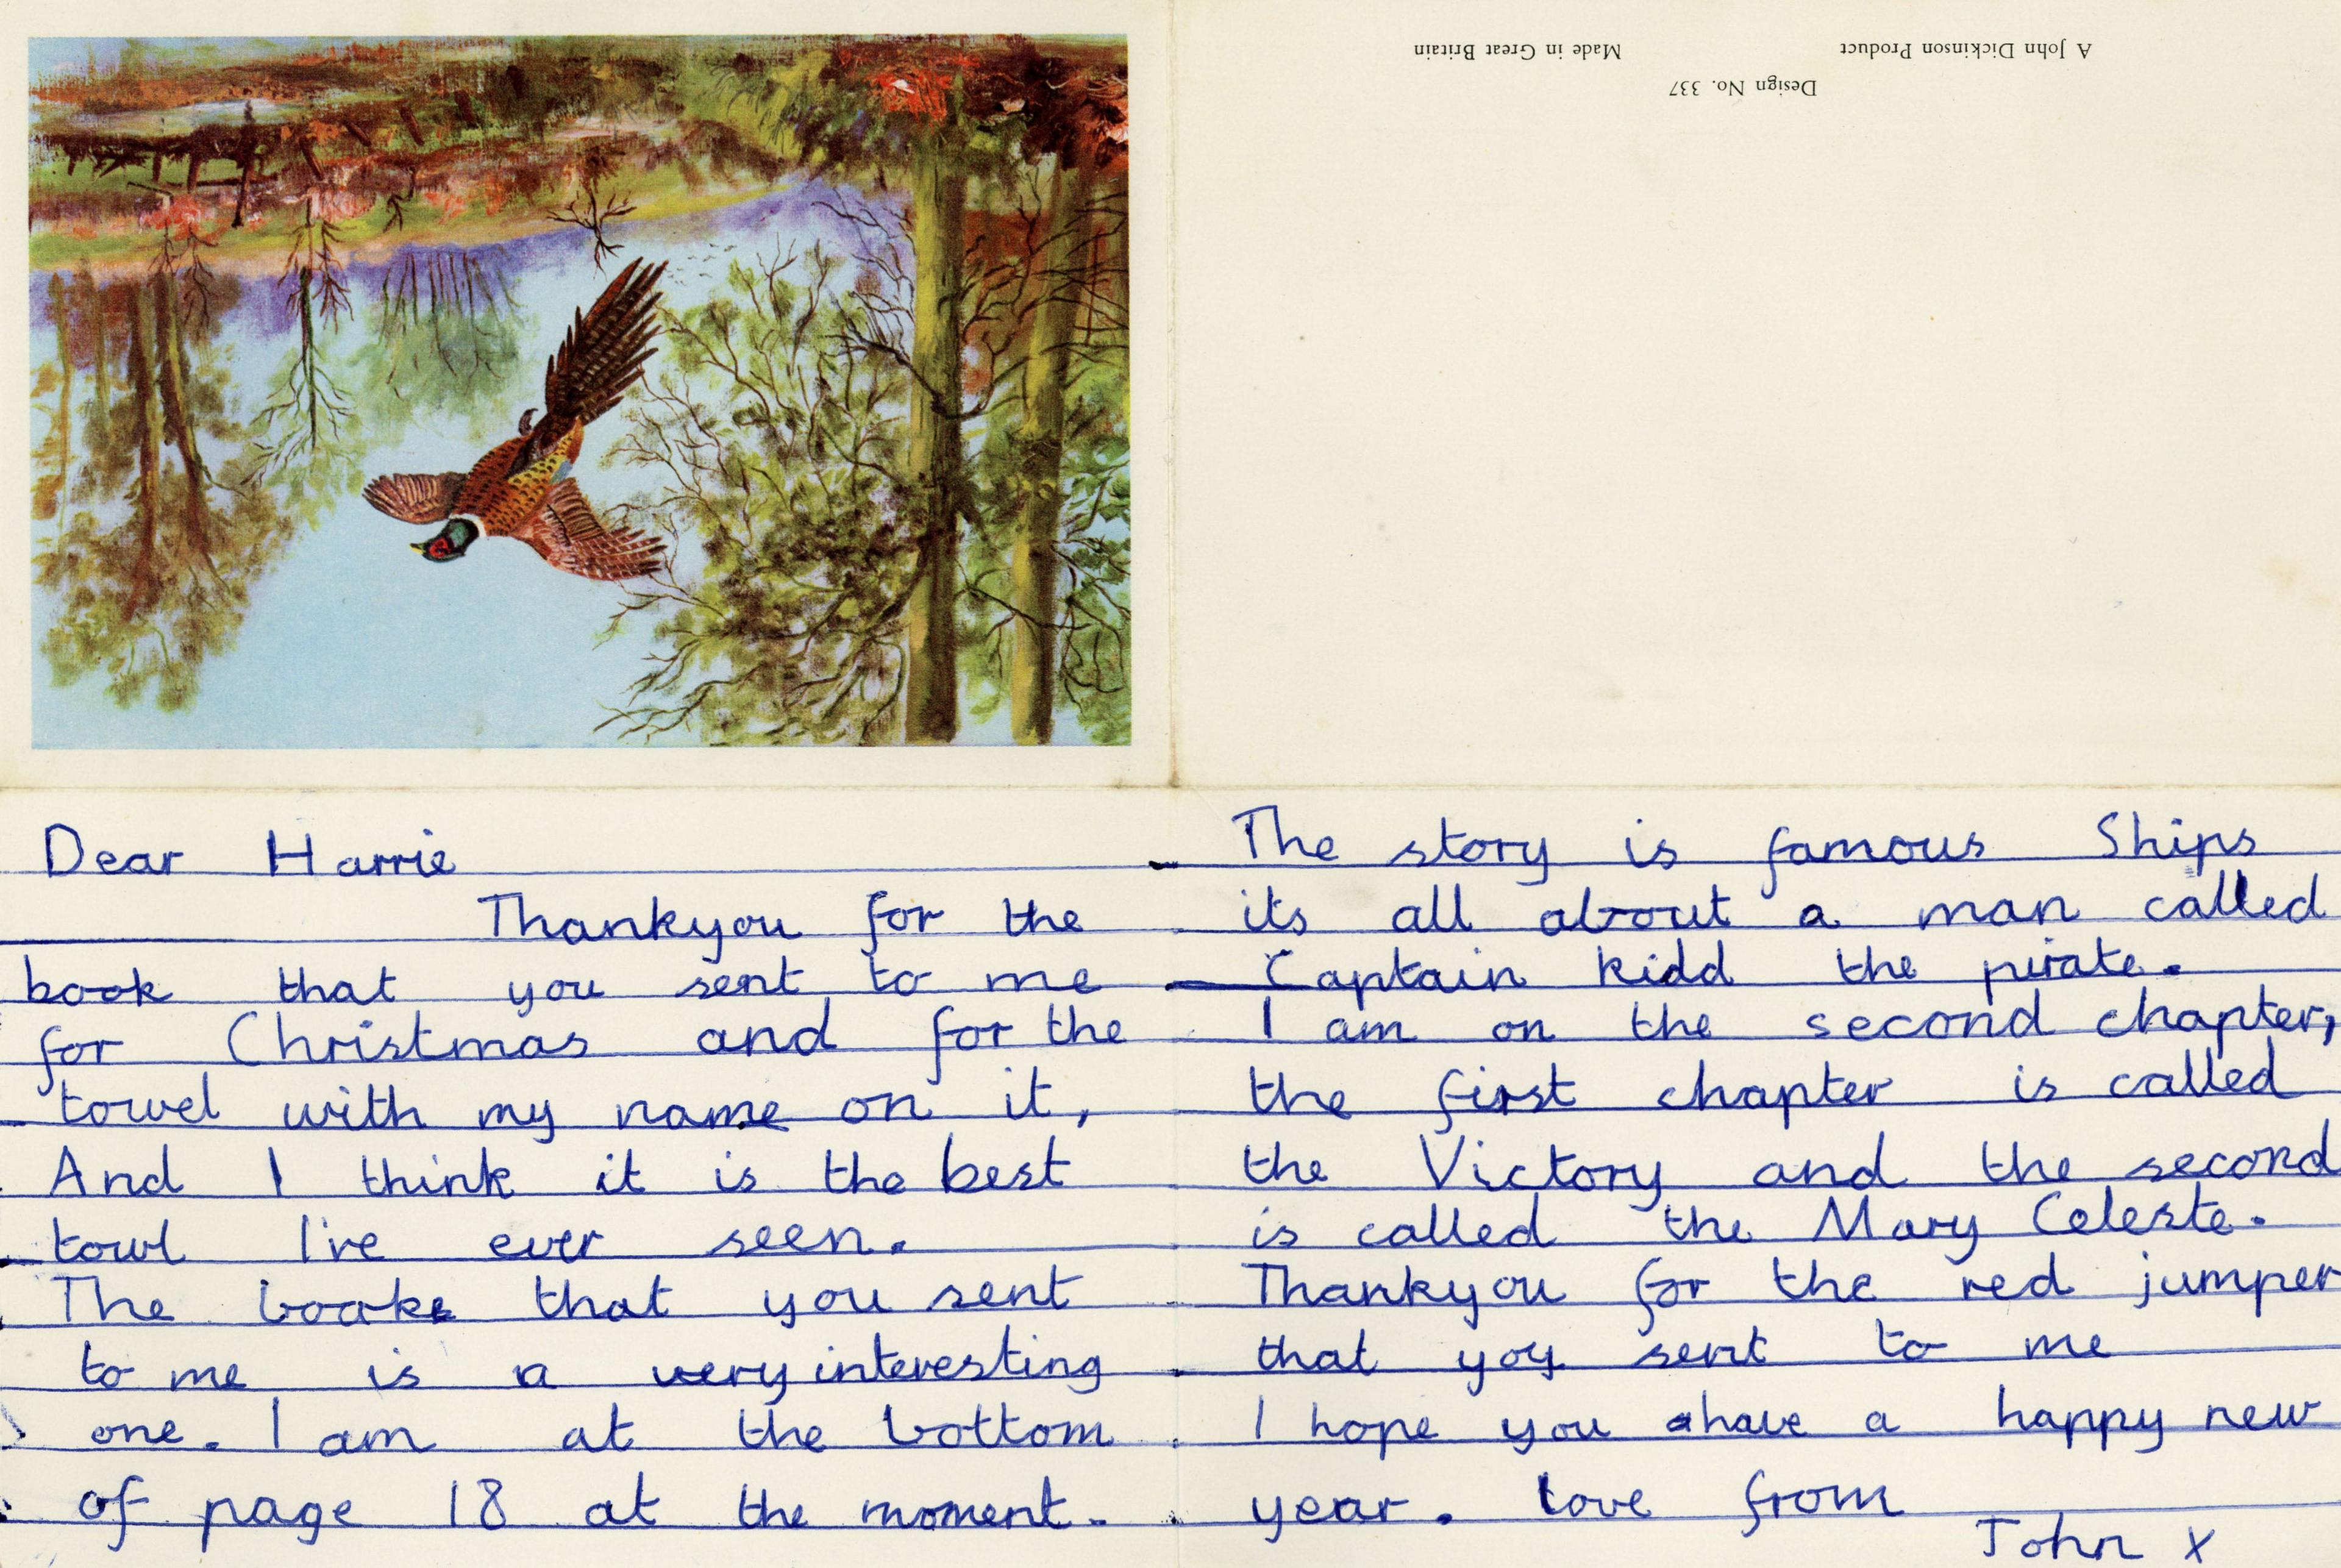 A John Dickinson Product
Made in Great Britain
Design No. 337
Dear Harrie
Thankyou for the
book that you sent to me
for Christmas and for the
towel with my name on it,
And I think it is the best
towl I've ever seen.
The book that you sent
to me is a very interesting
one. I am at the bottom
of page 18 at the moment.
The story is famous Ships
its all about a man called
Captain kidd the pirate.
I am on the second chapter,
the first chapter is called
the Victory and the second
is called the Mary Celeste.
Thankyou for the red jumper
that yoy sent to me
I hope you have a happy new
year. love from
John x